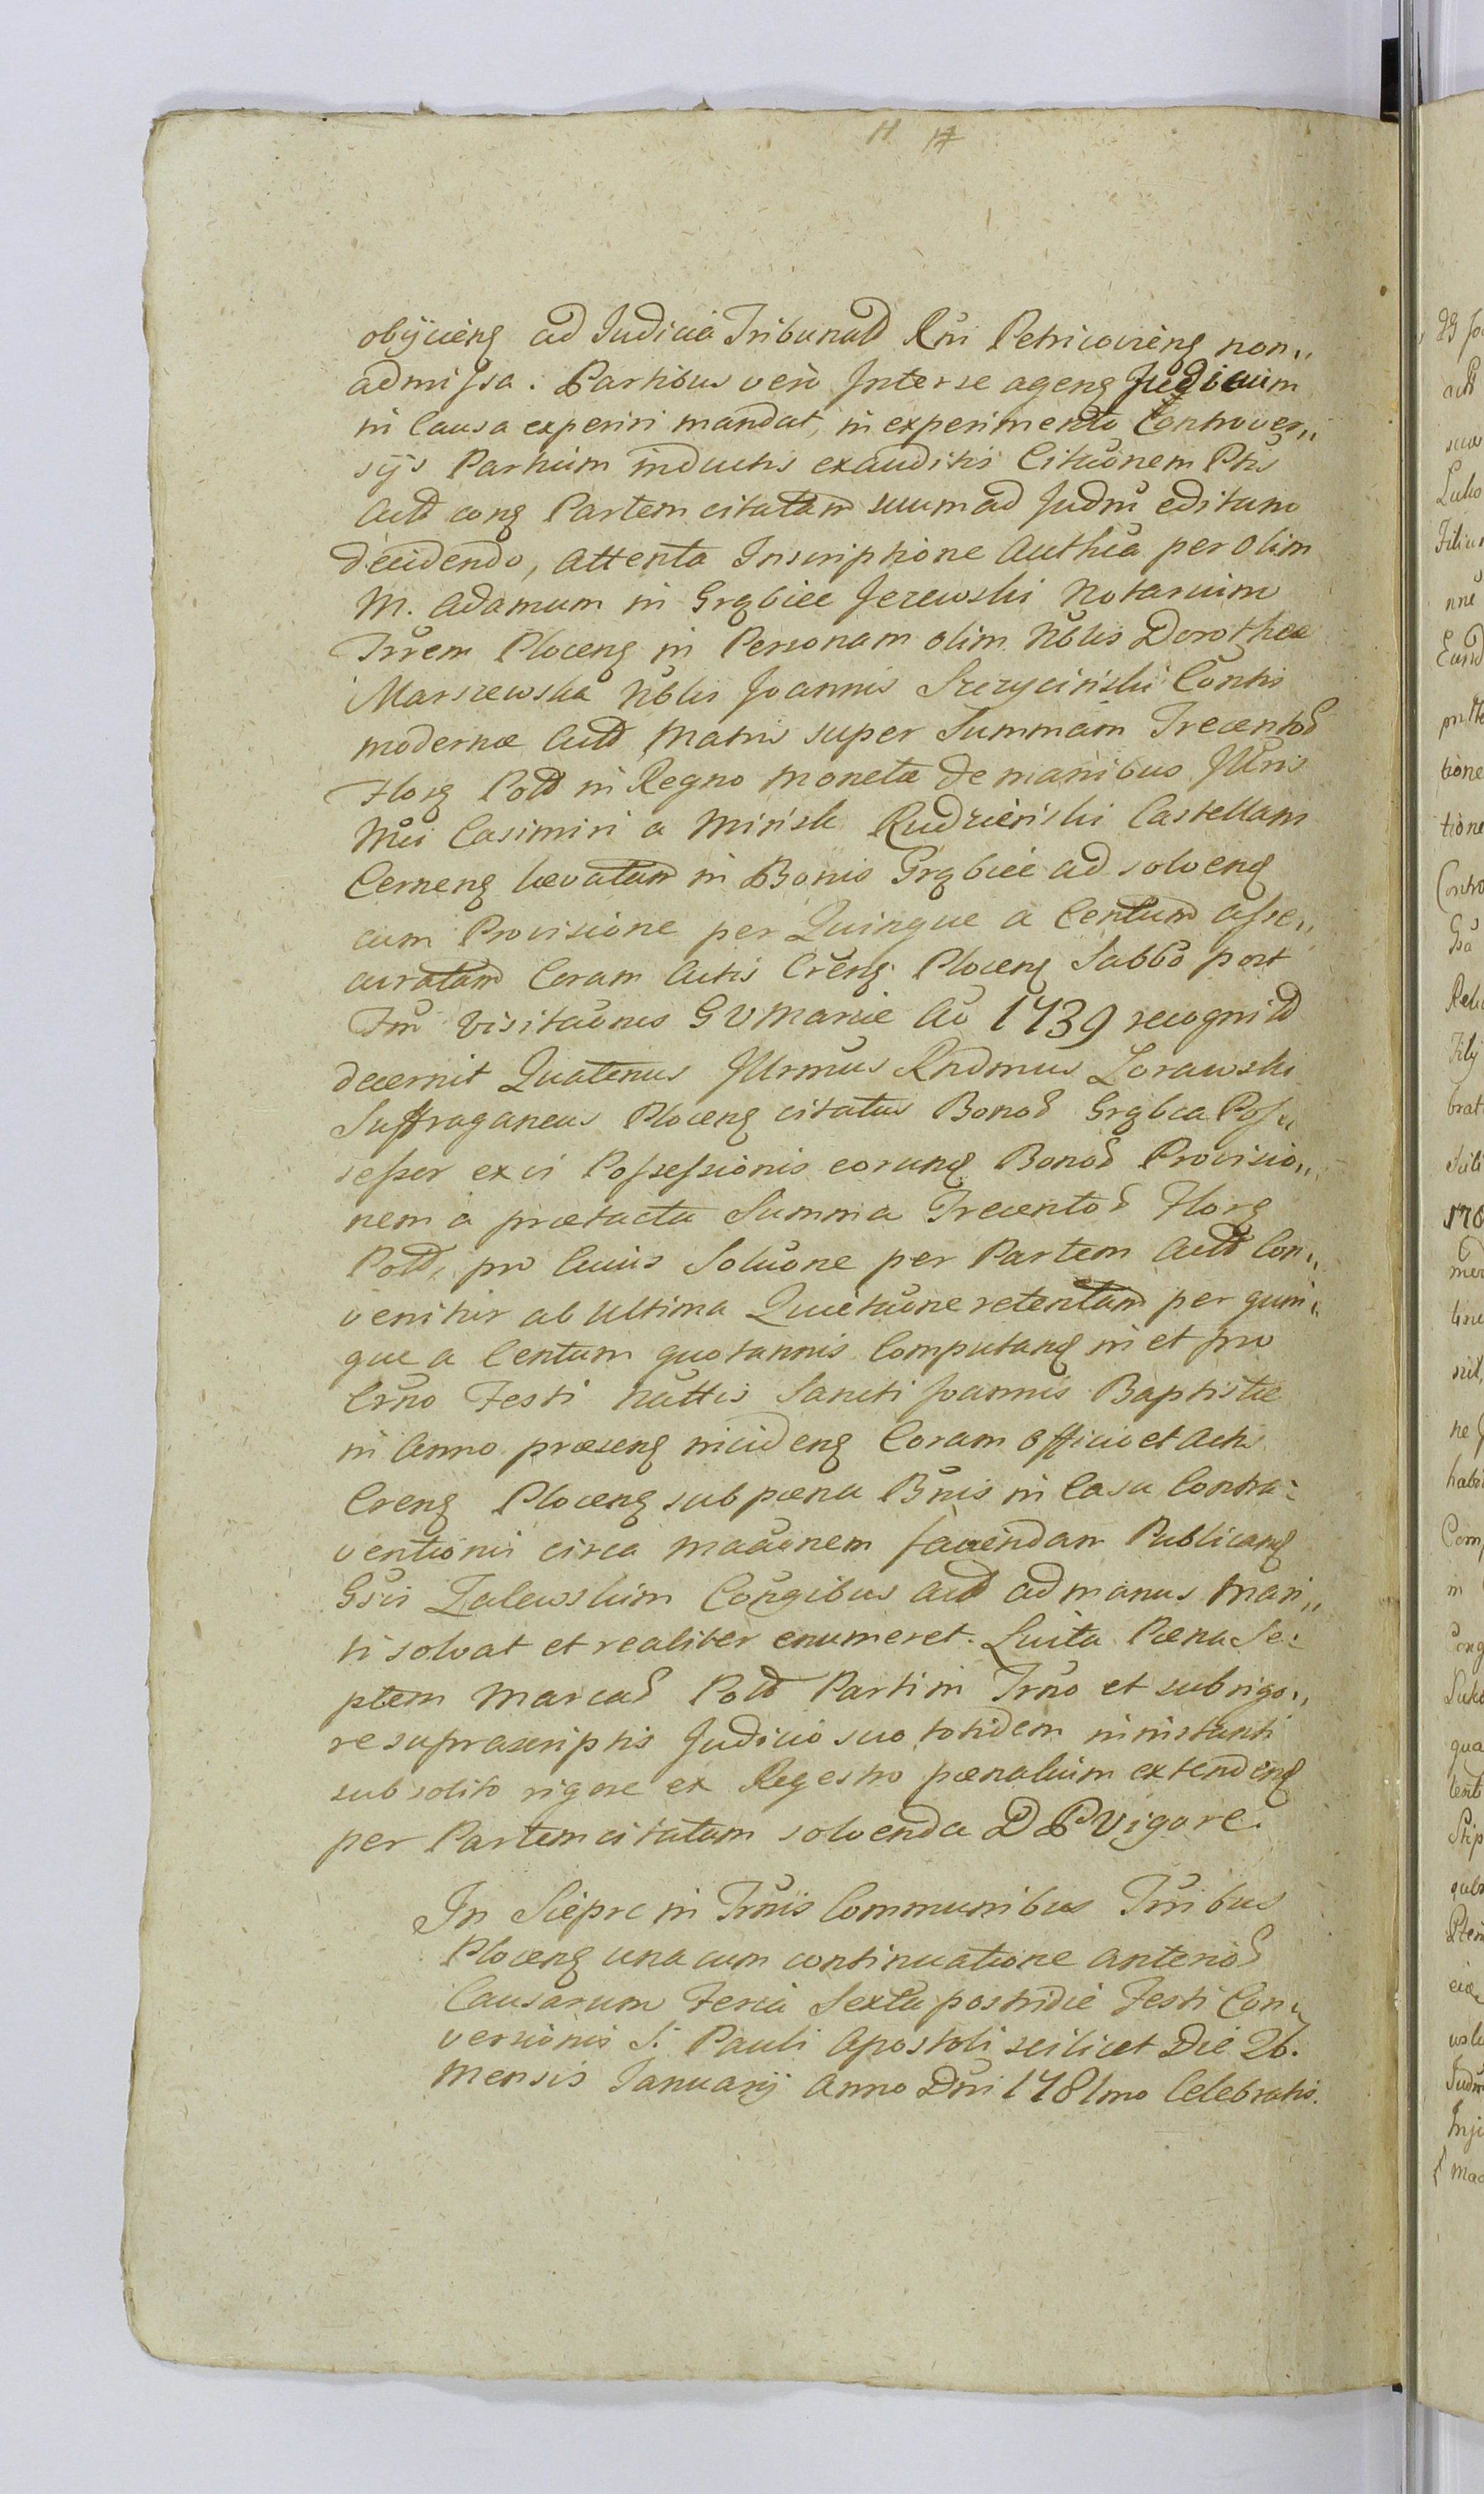 obijcieng ad Iudicia Tribunald Rni Petricovieng non„
admissa. Partibus vero Inter se ageng Judicium
in Causa experiri mandat, in experimento Controver„
sijs Partium inductis exauditis Citaōnem Ptis
Actd cong Partem citatam suum ad Judm editam
decidendo, Attenta Inscriptione Authca per olim
M. Adamum in Grąbiec Jezewski Notarium
Trrem Ploceng in Personam olim Nblis Dorothea
Marszewska Nblis Joannis Szczycinski Contis
modernæ Actd Matris super Summam Trecentos
Flong Pold in Regno Monetæ de manibus Jllris
Mci Casimiri a Minsk Rudzienski Castellani
Cerneng levatam in Bonis Grąbiec ad solveng
cum Provisione per Quinque a Centum asse„
curatam Coram Actis Creng Ploceng Sabbo post
Fm Visitaōnis GVMariæ Ao 1739 recognitd
decernit Quatenus Jllrmus Rndmus Zorawski
Suffraganeus Ploceng citatus Bonos Grąbca Pos„
sessor ex vi Possessionis eorung Bonos Provisio„
nem a prætacta Summa Trecentos Florg
Pold, pro Cuius Soluōne per Partem Actd Con„
venitur ab ultima Quietaōne retentam per quin„
que a Centum quotannis Computang in et pro
Crno Festi Nattis Sancti Joannis Baptistæ
in Anno præseng incideng Coram Officio et Actis
Creng Ploceng sub pœna Bnis in Casu Contra-
ventionis circa Maaōnem faciendam Publicang
Gsis Zalewskim Congibus Actd ad manus Mari„
ti solvat et realiter enumeret. Luita Pœna Se-
ptem Marcas Pold Parti in Trno et sub rigo„
re suprascriptis Judicio suo totidem in instanti
sub solito rigore ex Regestro pœnalium extendeng
per Partem citatam solvenda D P Vigore.
In Sieprc in Trnis Communibus Trribus
Ploceng una cum continuatione anterios
Causarum Feria Sexta postridie Festi Con„
versionis S. Pauli Apostoli scilicet Die 26.
Mensis Januarij Anno Dni 1781mo Celebratis.